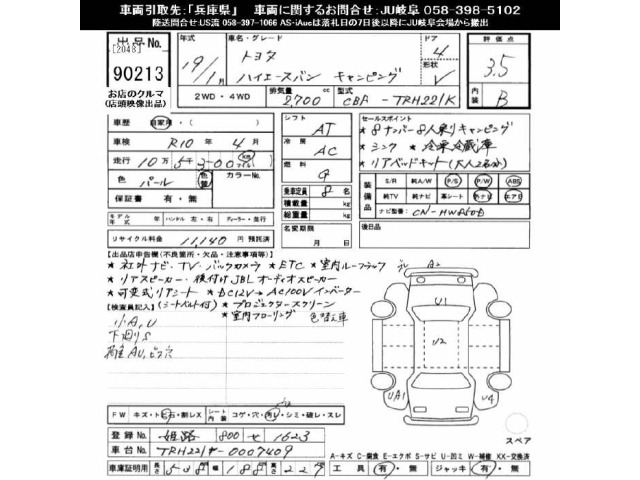 車両引取先：「兵庫県」 車両に関するお問合せ：JU岐阜 058-398-5102
陸送問合せ:US流 058-397-1066 AS-iAucは落札日の7日後以降にJU岐阜会場から搬出
出品No. [2048]
90213
お店のクルマ
(店頭映像出品)
年式 19/1月
車名・グレード トヨタ
ハイエースバン キャンピング
ドア 4
形状 V
評価点 3.5
内装 B
2WD・4WD
排気量 2,700 cc
型式 CBA-TRH221K
車歴 自家用・( )
車検 R10年 4月
走行 10万5千300 Km マイル
色 パール 色替 カラーNo.
保証書 有・無
モデル年式 年 ハンドル 左・右 ディーラー・並行
リサイクル料金 11,140円 預託済
シフト AT
冷房 AC
燃料 G
乗車定員 8名
積載量 kg
総重量 kg
名変期限
月 日
セールスポイント
★8ナンバー8人乗りキャンピング
★シンク ★冷凍冷蔵庫
★リアベッドキット(大人2名分)
装備品 S/R 純A/W P/S P/W ABS
純TV 純ナビ 革シート 外ナビ エアB
ナビ型番
後日品
【出品店申告欄(不良箇所・欠品・注意事項等)】
★社外ナビ・TV・バックカメラ ★ETC ★室内ルーフラック
★リアスピーカー・後付けJBLオーディオスピーカー
★可変式リアシート ★DC12V→AC100Vインバーター
【検査員記入】(シートベルト付) ★プロジェクタースクリーン
★室内フローリング 色替え車
小A,U
下廻りS
荷室AU,ビス穴
A2
U1
U2
UA1
U4
スペア
FW キズ・トビ石・割レX
シート内装 コゲ・穴・汚レ・シミ・破レ・スレ
登録No. 姫路 800 せ 1623
車台No. TRH221ｹ-0007409
車庫証明用 長さ538 幅188 高さ227
工具 (有)・無 ジャッキ (有)・無
A-キズ C-腐食 E-エクボ S-サビ U-凹ミ W-補修 XX-交換済